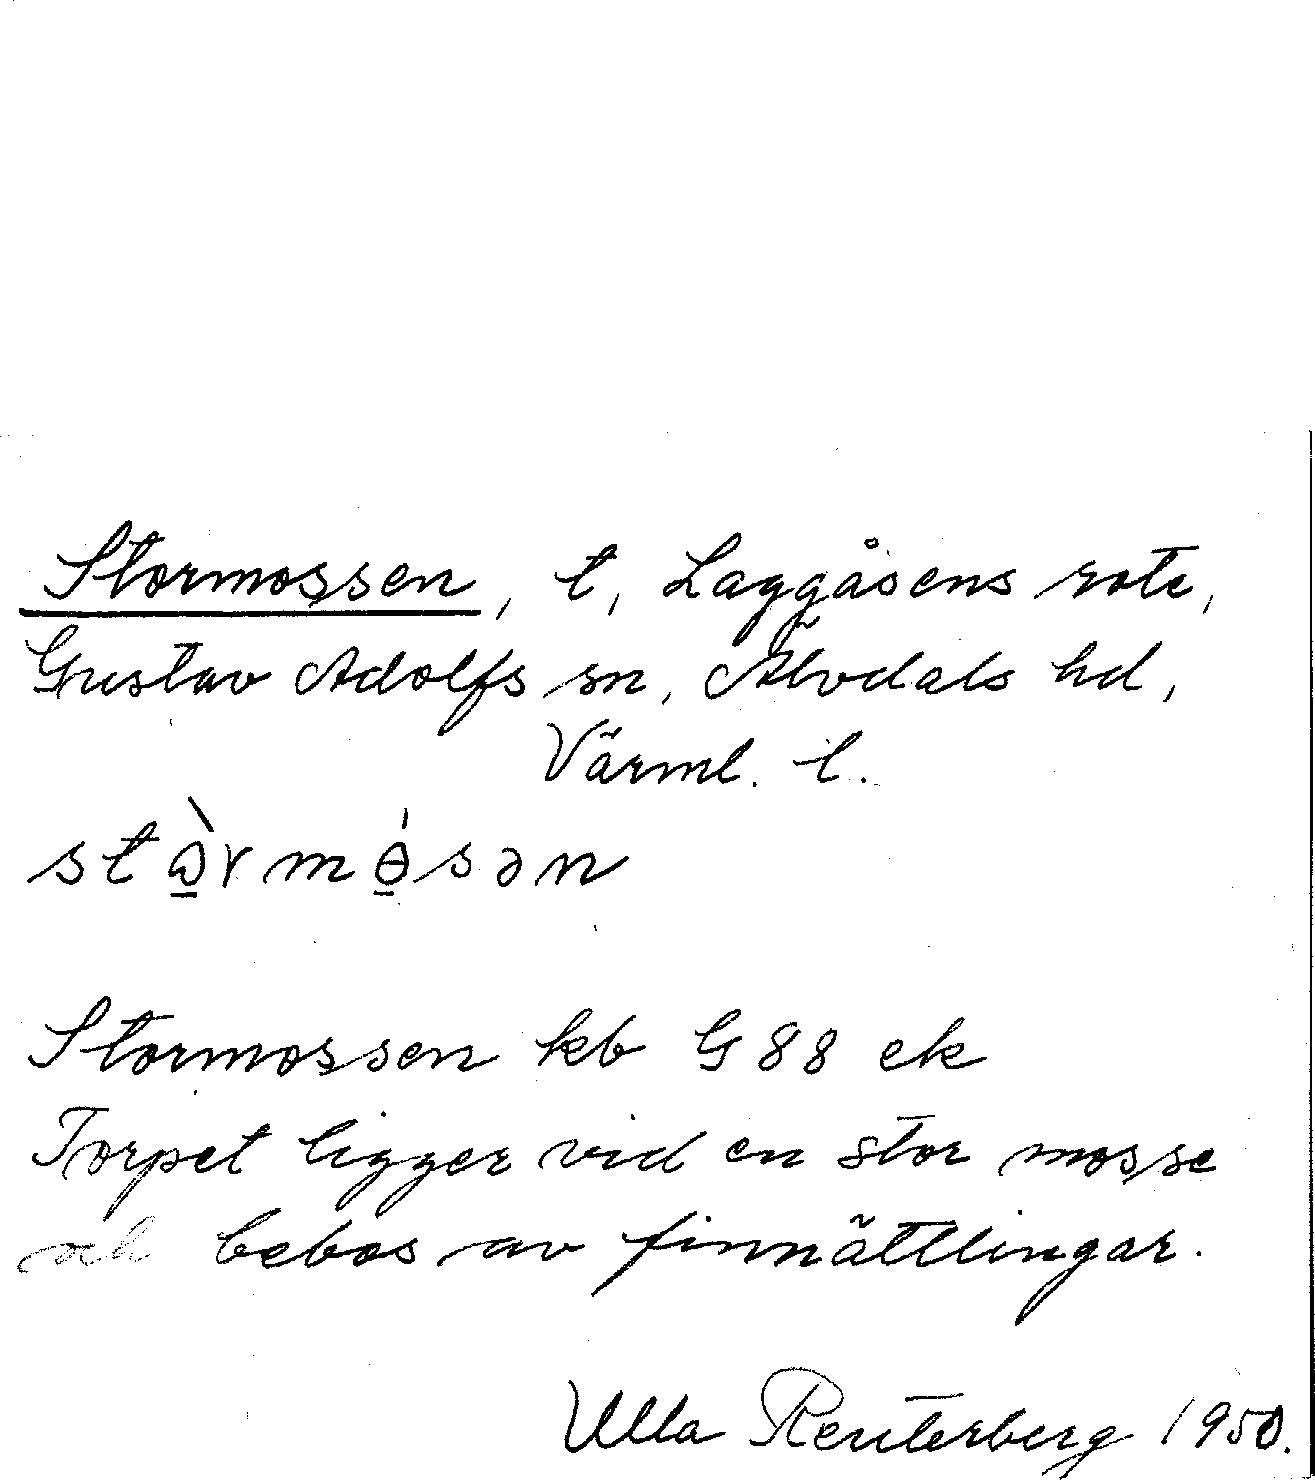 Stormossen, t, Laggåsens rote,
Gustav Adolfs sn, Älvdals hd,
Värml. l.
stɷ̠̀rmɵ̠́sən
Stormossen kb G 88 ek
Torpet ligger vid en stor mosse
och bebos av finnättlingar.
Ulla Reuterberg 1950.